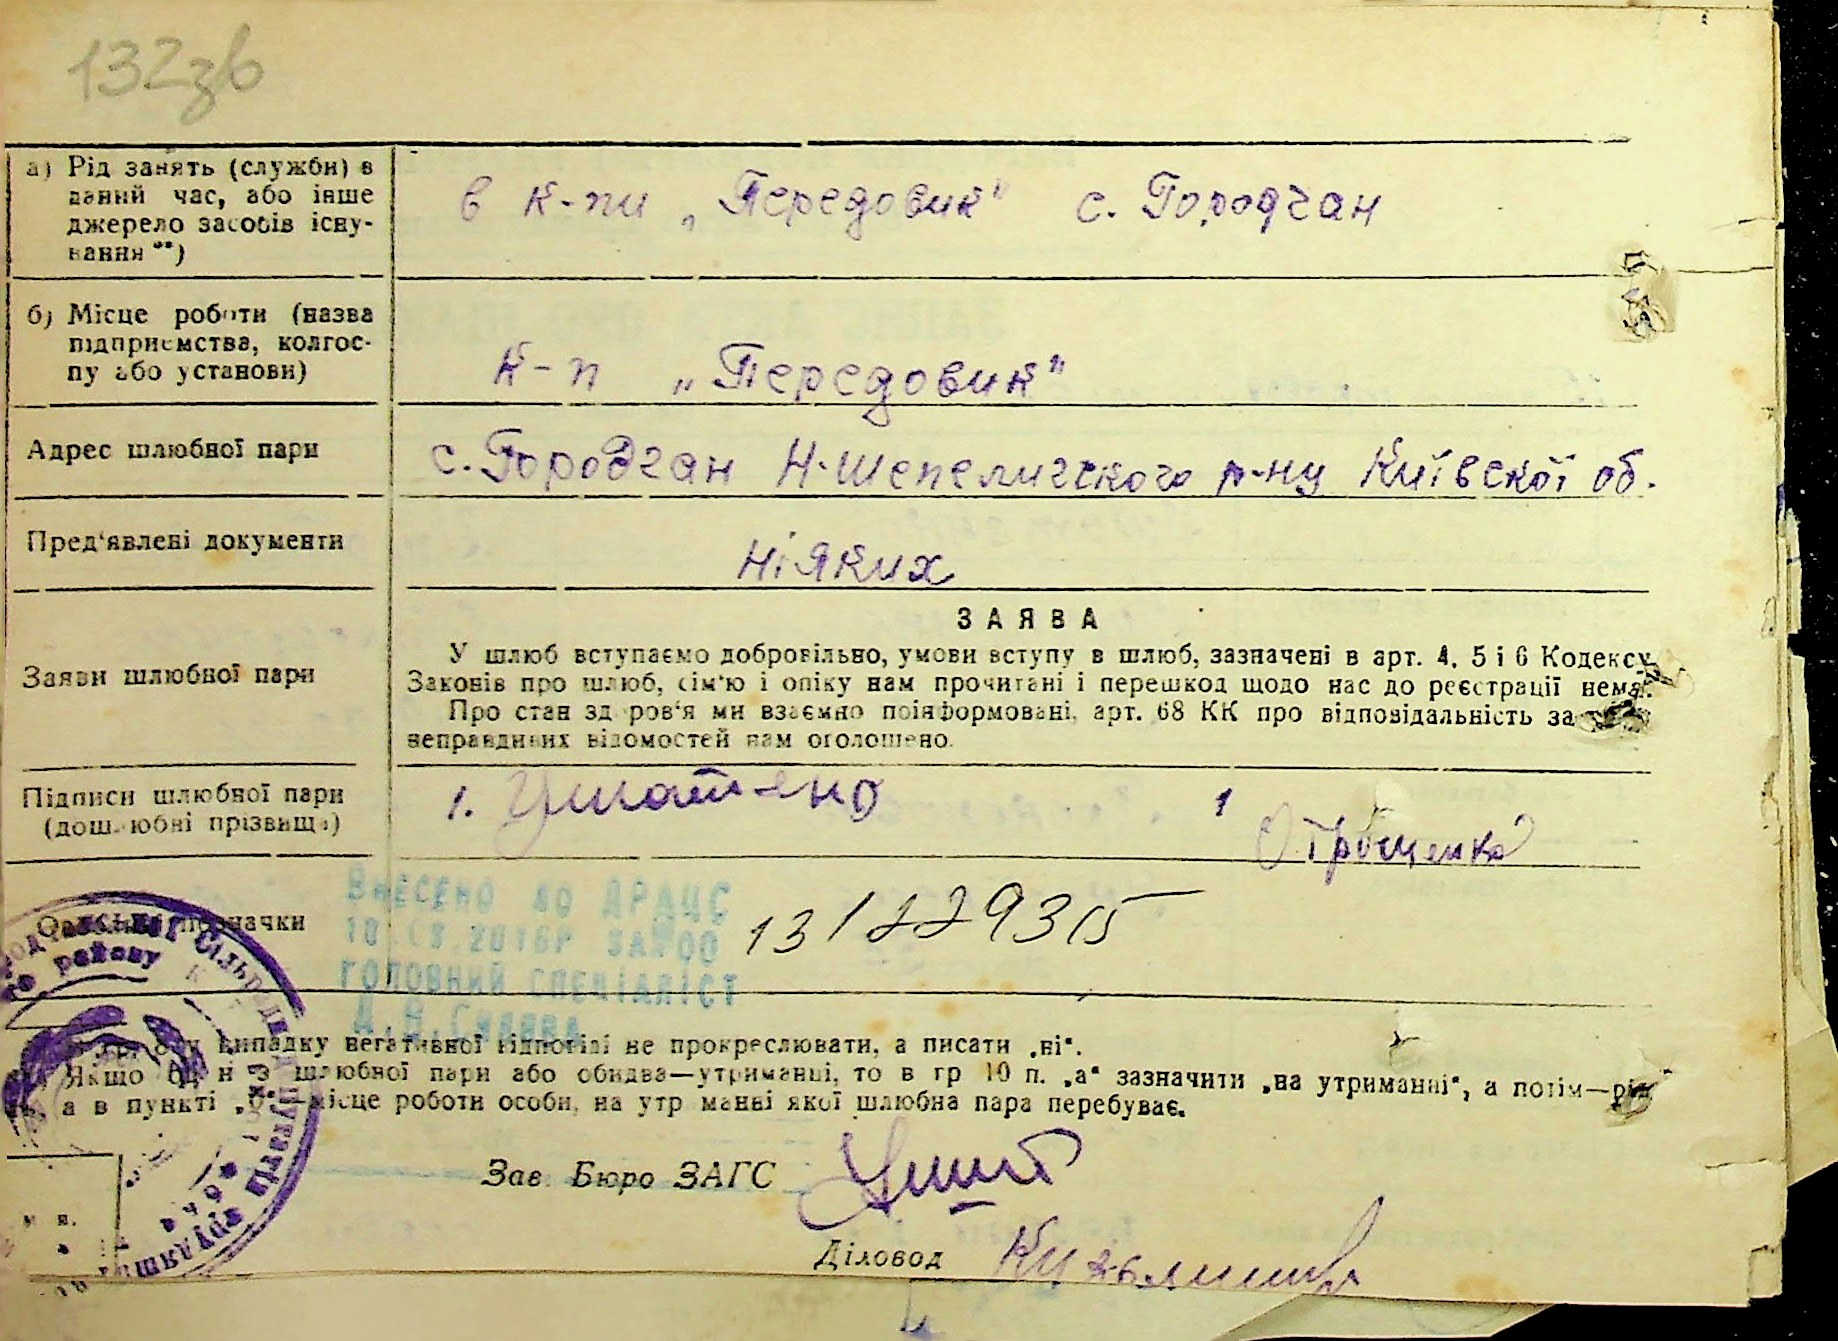 132зв
а) Рід занять (служби) в
даний час, або інше
джерело засобів існу-
вання **)
в к-пи „Передовик" с. Городчан
б) Місце роботи (назва
підприємства, колгос-
пу або установи)
к-п „Передовик"
Адрес шлюбної пари
с. Городчан Н-Шепеличского р-ну Київскої об.
Пред'явлені документи
ніяких
Заяви шлюбної пари
ЗАЯВА
У шлюб вступаємо добровільно, умови вступу в шлюб, зазначені в арт. 4, 5 і 6 Кодексу
Законів про шлюб, сім'ю і опіку нам прочитані і перешкод щодо нас до реєстрації нема.
Про стан здоров'я ми взаємно поінформовані, арт. 68 КК про відповідальність за
неправдивих відомостей нам оголошено.
Підписи шлюбної пари
(дошлюбні прізвища)
1.
1
Трощенко
Внесено до ДРАЦС
2016р
головний спеціаліст
131229315
випадку негативної відповіді не прокреслювати, а писати „ні".
Якщо один з шлюбної пари або обидва—утриманці, то в гр 10 п. „а" зазначити „на утриманні", а потім—рід
а в пункті „б"—місце роботи особи, на утриманні якої шлюбна пара перебуває.
Зав. Бюро ЗАГС
Діловод